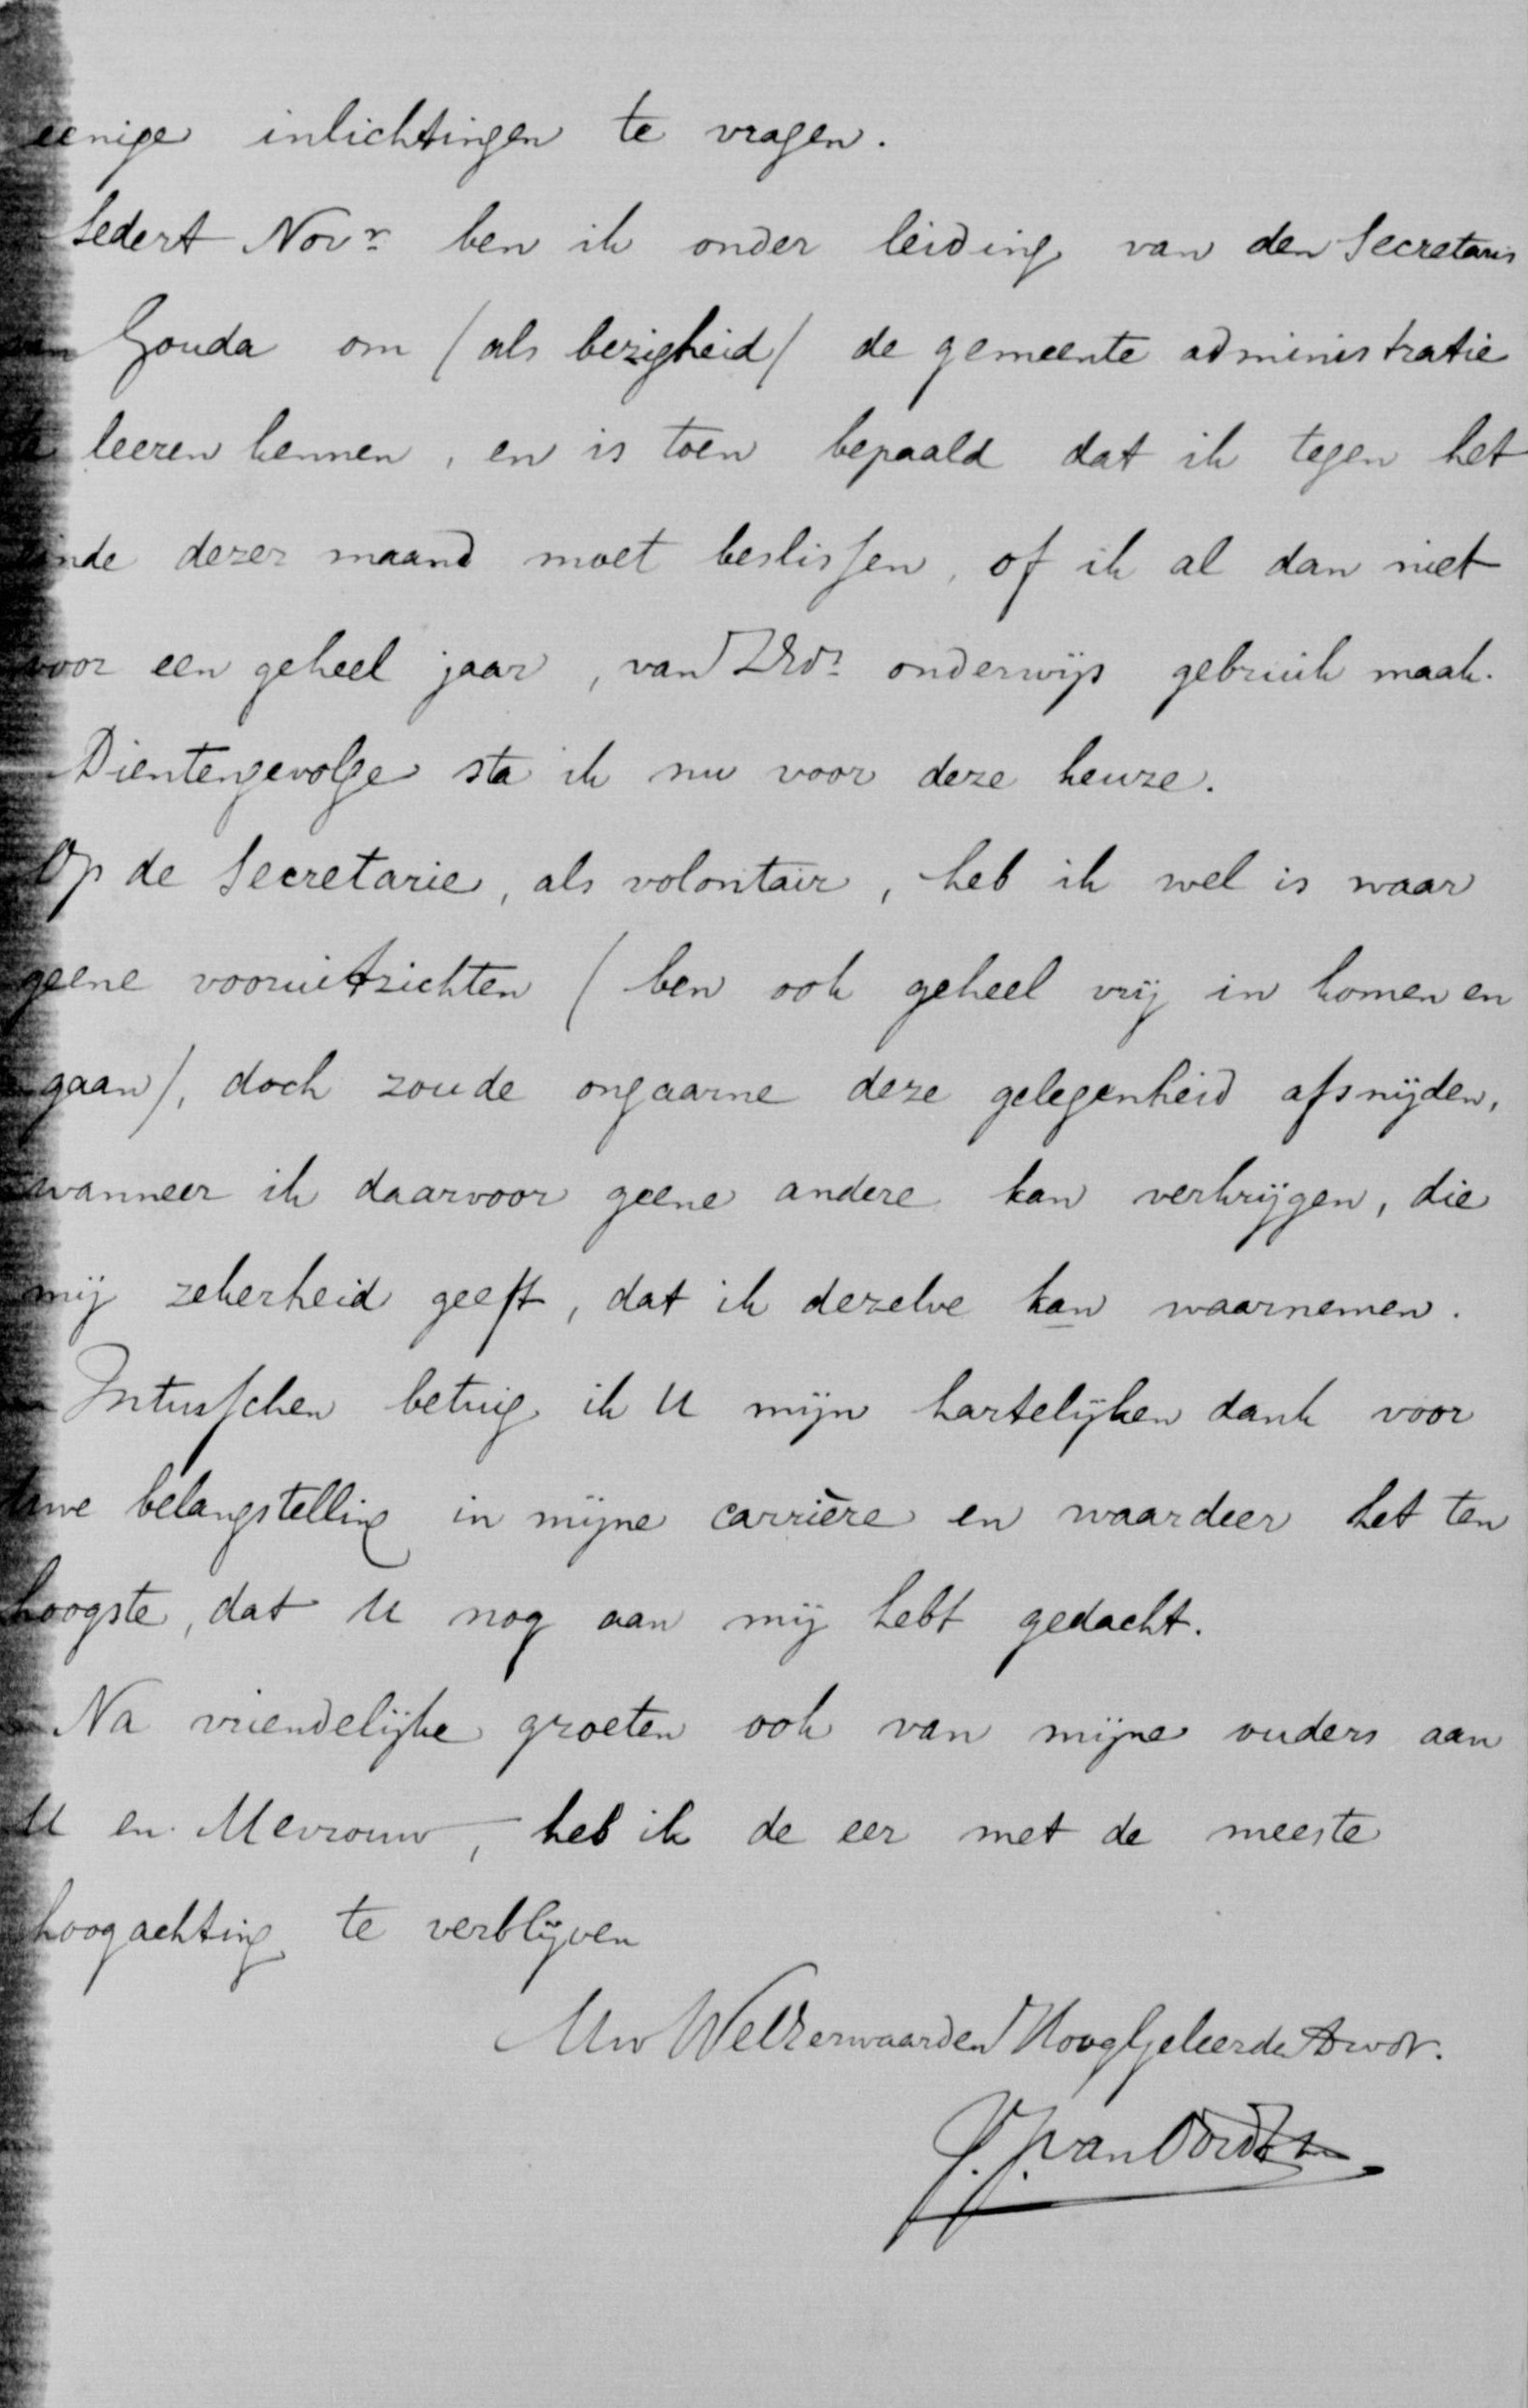 eenige inlichtingen te vragen.
Sedert Novr ben ik onder leiding van den Secretaris
van Gouda om (als bezigheid) de gemeente administratie
te leeren kennen, en is toen bepaald dat ik tegen het
einde dezer maand moet beslissen, of ik al dan niet
voor een geheel jaar, van ZEds onderwijs gebruik maak.
Dientengevolge sta ik nu voor deze keuze.
Op de Secretarie, als volontair, heb ik wel is waar
geene vooruitzichten (ben ook geheel vrij in komen en
gaan), doch zoude ongaarne deze gelegenheid afsnijden,
wanneer ik daarvoor geene andere kan verkrijgen, die
mij zekerheid geeft, dat ik dezelve kan waarnemen.
Intusschen betuig ik U mijn hartelijken dank voor
Uwe belangstelling in mijne carrière en waardeer het ten
hoogste, dat U nog aan mij hebt gedacht.
Na vriendelijke groeten ook van mijne ouders aan
U en Mevrouw, heb ik de eer met de meeste
hoogachting te verblijven
Uw WelEerwaarden HoogGeleerde Dwdr.
J. J. van Oordt